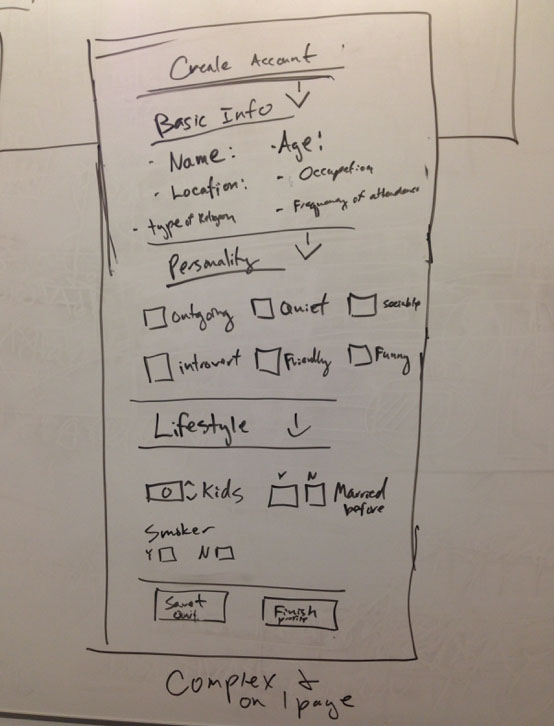 Create Account
Basic Info
- Name: - Age:
- Location: - Occupation
- type of Religion - Frequency of attendence
Personality
outgoing Quiet sociable
introvert Friendly Funny
Lifestyle
0 Kids Y N Married before
Smoker
Y N
Save + Quit Finish profile
Complex &
on 1 page